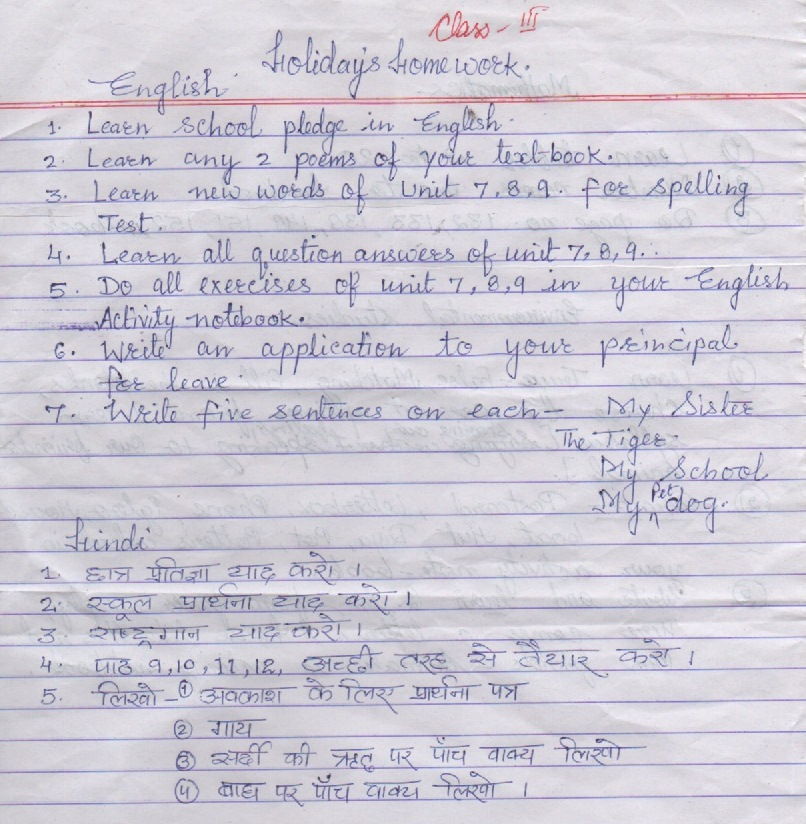 Class - III
Holidays Homework.
English
1. Learn school pledge in English.
2. Learn any 2 poems of your text-book.
3. Learn new words of Unit 7,8,9. for spelling
Test.
4. Learn all question answers of unit 7,8,9..
5. Do all exercises of unit 7,8,9 in your English
Activity notebook.
6. Write an application to your principal
for leave
7. Write five sentences on each - My Sister
The Tiger.
My School
My Pet dog.
Hindi
1. छात्र प्रतिज्ञा याद करो ।
2. स्कूल प्रार्थना याद करो ।
3. राष्ट्रगान याद करो ।
4. पाठ 9,10,11,12, अच्छी तरह से तैयार करो ।
5. लिखो - ① अवकाश के लिए प्रार्थना पत्र
② गाय
③ सर्दी की ऋतु पर पाँच वाक्य लिखो
④ बाघ पर पाँच वाक्य लिखो ।